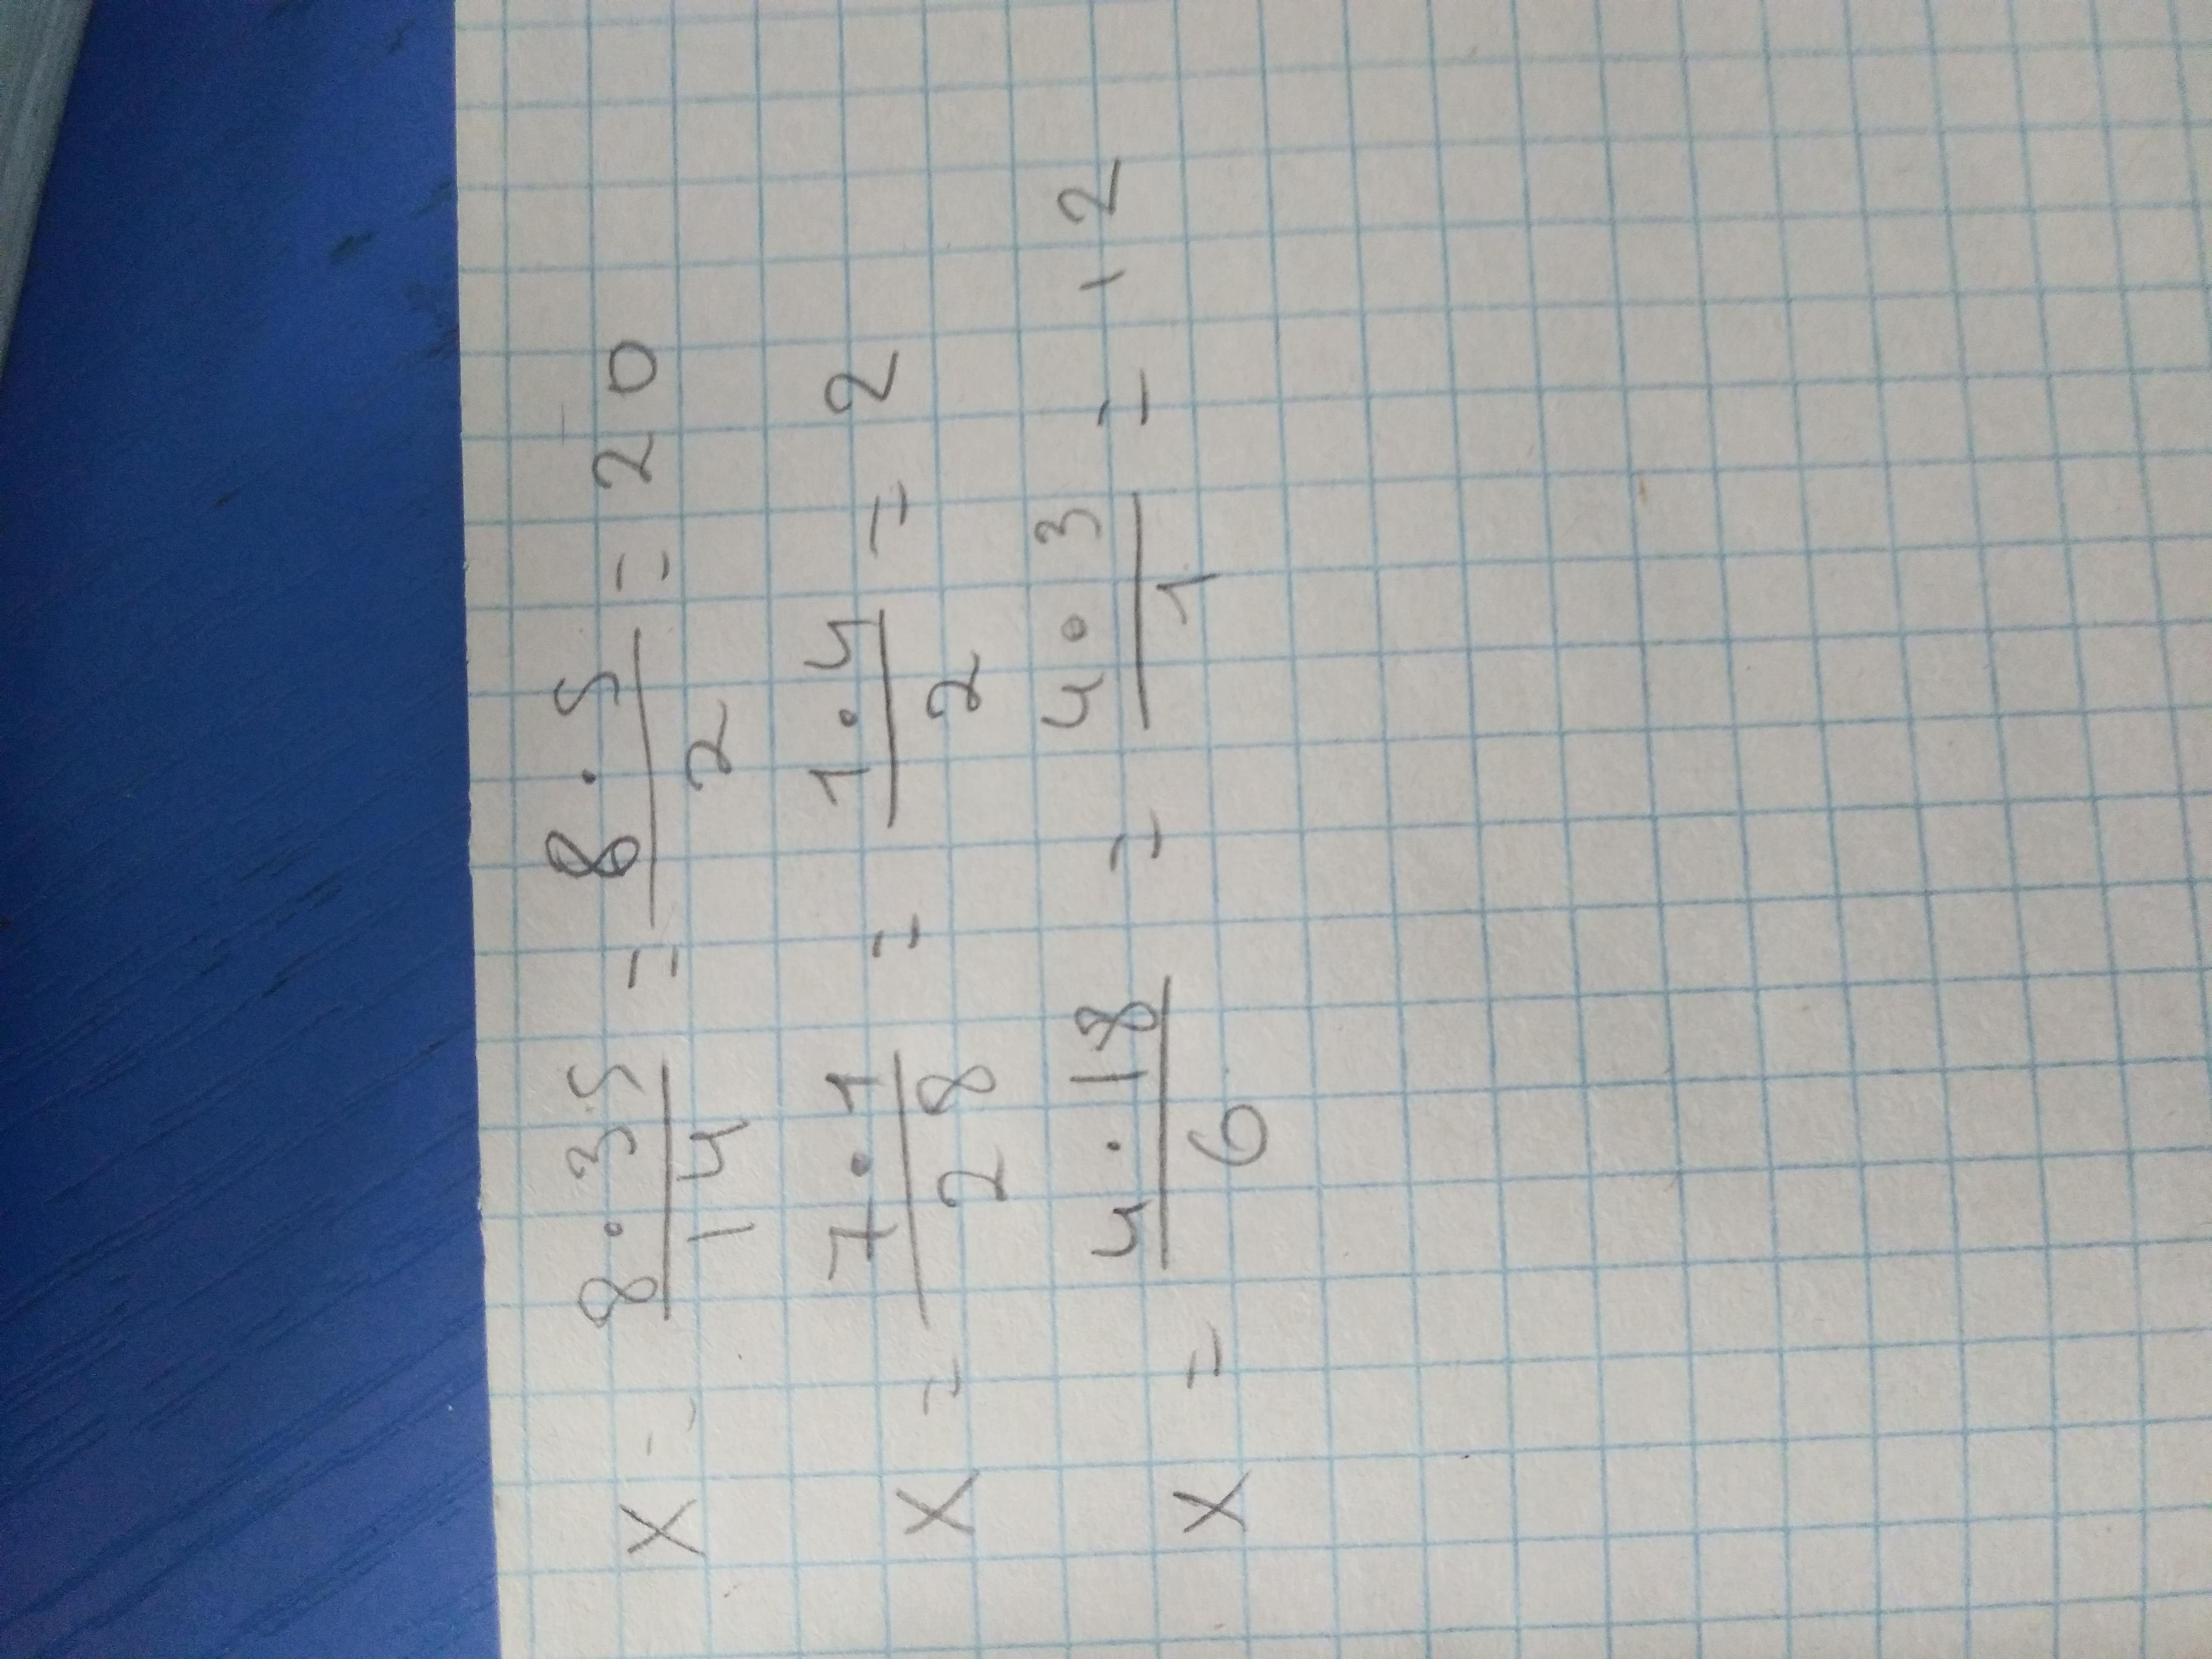 X = 8·35/14 = 8·5/2 = 20
X = 7·1/28 = 1·4/2 = 2
X = 4·18/6 = 4·3/1 = 12